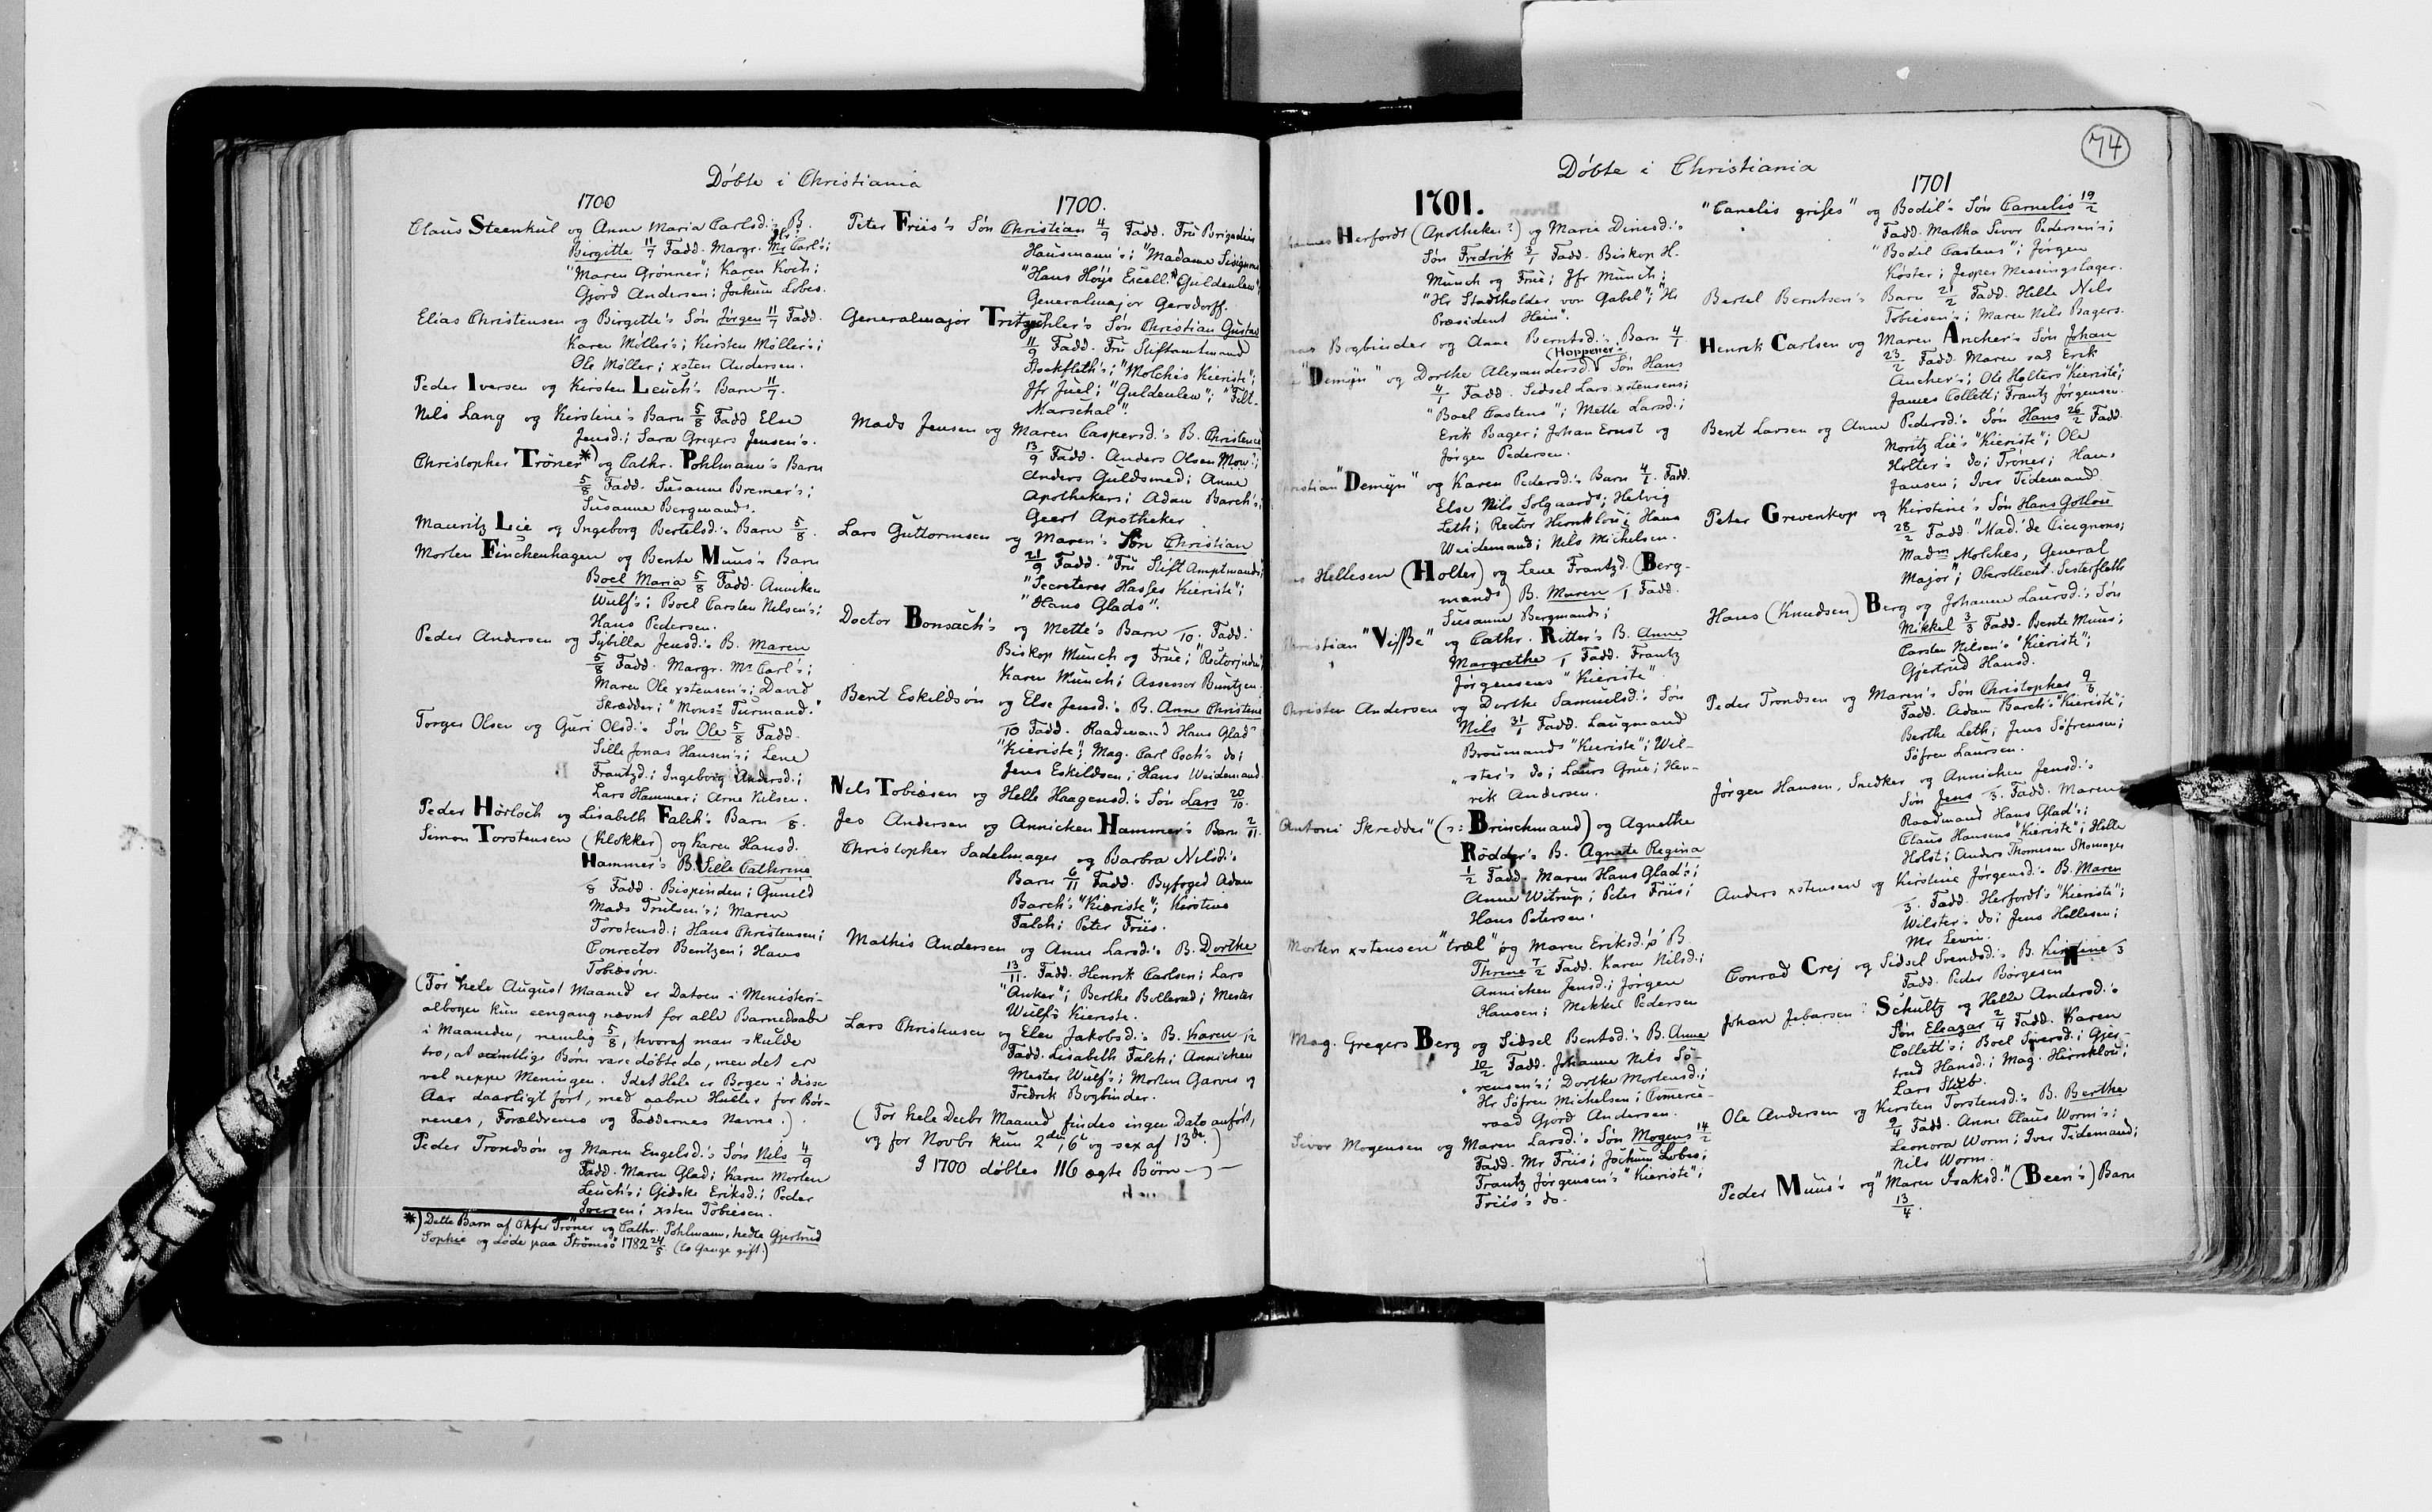 Döbte i Christiania
1700
Claus Steenkul og Anne Maria Carlsd.'s B.
Birgitte 11/7 Fadd. Margr. Mr Carl's;
"Maren Grönner"; Karen Koch;
Gjord Andersen; Jochum Lobes.
Elias Christensen og Birgitte's Sön Jörgen 11/7 Fadd.
Karen Möller's; Kirsten Möller's;
Ole Möller; xsten Andersen.
Peder Iversen og Kirsten Leuch's Barn 11/7.
Nils Lang og Kirstine's Barn 5/8 Fadd Else
Jensd.; Sara Gregers Jensen's.
Christopher Tröner *) og Cathr. Pohlmann's Barn
5/8 Fadd. Susanne Bremer's;
Susanne Bergmands.
Mauritz Lie og Ingeborg Bertelsd.'s Barn 5/8.
Morten Finckenhagen og Bente Muus's Barn
Boel Maria 5/8 Fadd. Anniken
Wulf's; Boel Carsten Nelsen's;
Hans Pedersen.
Peder Andersen og Sybilla Jensd.'s B. Maren
5/8 Fadd. Margr. Mr Carl's;
Maren Ole xstensen's; David
Skrædder; "Monsr Turmand."
Torger Olsen og Guri Olsd.'s Sön Ole 5/8 Fadd.
Sille Jonas Hansen's; Lene
Frantzd.; Ingeborg Andersd.;
Lars Hammer; Arne Nilsen.
Peder Hörloch og Lisabeth Falch's Barn /8.
Simon Torstensen (Klokker) og Karen Hansd.
Hammer's B. Sille Cathrine
/8 Fadd. Bispinden; Gunild
Mads Trulsen's; Maren
Torstensd.; Hans Christensen;
Conrector Bentzen; Hans
Tobiesön.
(For hele August Maaned er Datoen i Ministeri-
albogen kun eengang nævnt for alle Barnedaabe
i Maaneden, nemlig 5/8, hvoraf man skulde
tro, at samtlige Börn vare döbte da, men det er
vel neppe Meningen. I det Hele er Bogen i disse
Aar daarligt fört, med aabne Huller for Bör-
nenes, Forældrenes og Faddernes Navne.)
Peder Trondsön og Maren Engelsd.'s Sön Nils 4/9
Fadd. Maren Glad; Karen Morten
Leuch's; Gidske Eriksd.; Peder
Iversen; xsten Tobiesen.
*) Dette Barn af Chfer Tröner og Cathr. Pohlmann, hedte Gjertrud
Sophie og döde paa Strömsö 1782 24/5 (to Gange gift.)
1700.
Peter Friis's Sön Christian 4/9 Fadd. Fru Brigadier
Hausmann's; "Madame Sisignon
"Hans Höje Excell. Guldenlew";
Generalmajor Gersdorff.
Generalmajor Tritzschler's Sön Christian Gustav
11/9 Fadd. Fru Stiftamtmand
Stockfleth's; "Molches Kieriste";
Jfr Juel; "Guldenlew"; "Felt-
Marschal".
Mads Jensen og Maren Caspersd.'s B. Christence
13/9 Fadd. Anders Olsen Mow's;
Anders Guldsmed; Anne
Apothekers; Adam Barch's;
Geert Apotheker
Lars Guttormsen og Maren's Sön Christian
21/9 Fadd. "Fru Stift Amptmands;
"Secreteres Hasses Kieriste";
"Hans Glads".
Doctor Bonsach's og Mette's Barn /10. Fadd.
Biskop Munch og Frue; "Rectorinden"
Karen Munch; Assessor Buntzen.
Bent Eskildsön og Else Jensd.'s B. Anne Christene
/10 Fadd. Raadmand Hans Glad's
"Kieriste"; Mag. Carl Coch's do;
Jens Eskildsen; Hans Weidemand.
Nels Tobiesen og Helle Haagensd.'s Sön Lars 20/10.
Jes Andersen og Annicken Hammer's Barn 2/11.
Christopher Sadelmager og Barbra Nilsd.'s
Barn 6/11 Fadd. Byfoged Adam
Barch's "Kieriste"; Kirstine
Falch; Peter Friis.
Mathis Andersen og Anne Larsd.'s B. Dorthe
13/11. Fadd. Henrik Carlsen; Lars
"Anker"; Berthe Bollesd; Mester
Wulf's Kieriste.
Lars Christensen og Elen Jakobsd.'s B. Karen /12
Fadd. Lisabeth Falch; Annichen
Mester Wulf's; Morten Garver og
Fredrik Bogbinder.
(For hele Decbr Maaned findes ingen Dato anfört,
og for Novbr kun 2den, 6te og sex af 13de.)
I 1700 döbtes 116 ægte Börn
74
Döbte i Christiania
1701.
Herfordt (Apotheker?) og Marie Dinesd.'s
Sön Fredrik 3/1 Fadd. Biskop H.
Munch og Frue; Jfr Munch;
"Hr Stadtholder von Gabel"; "Hr
Præsident Hein".
Bogbinder og Anne Berntsd.'s Barn 4/1
(Hoppener's)
"Demijn" og Dorthe Alexandersd. Sön Hans
4/1 Fadd. Sidsel Lars xstensens;
"Boel Castens"; Mette Larsd.;
Erik Bager; Johan Ernst og
Jörgen Pedersen.
"Demijn" og Karen Pedersd.'s Barn 4/1. Fadd.
Else Nils Solgaards; Helvig
Leth; Rector Hirnklou; Hans
Weidemand; Nils Michelsen.
Hellesen (Holter) og Lene Frantzd. (Berg-
mands) B. Maren /1 Fadd.
Susanne Bergmands;
Christian "Visse" og Cathr. Ritter's B. Anne
Margrethe /1 Fadd. Frantz
Jörgensens "Kieriste".
Christen Andersen og Dorthe Samuelsd.'s Sön
Nils 31/1 Fadd. Laugmand
Broumands "Kieriste"; Wil-
ster's do; Laurs Grue; Hen-
rik Andersen.
"Antoni Skredder" (ɔ: Brinchmand) og Agnethe
Rödder's B. Agnete Regina
1/2 Fadd. Maren Hans Glad's;
Anne Witrup; Peter Friis;
Hans Petersen.
Morten xstensen "træl" og Maren Eriksd.'s B
Thrine 7/2 Fadd. Karen Nilsd.;
Annichen Jensd.; Jörgen
Hansen; Mikkel Pedersen
Mag. Gregers Berg og Sidsel Bentsd.'s B. Anne
10/2 Fadd. Johanne Nils Sö-
rensen's; Dorthe Mortensd.;
Hr Söfren Michelsen; Comerce-
raad Gjord Andersen.
Sivor Mogensen og Maren Larsd.'s Sön Mogens 14/2
Fadd. Mr Friis; Jochum Lobes;
Frantz Jörgensen's "Kieriste";
Friis's do.
1701
"Canelis grises" og Bodil's Sön Carnelis 19/2
Fadd. Martha Sivor Pedersen's;
"Bodil Castens"; Jörgen
Köster; Jesper Messingslager.
Bertel Berntsen's Barn 21/2 Fadd. Helle Nils
Tobiesen's; Maren Nils Bagers.
Henrik Carlsen og Maren Ancher's Sön Johan
23/2 Fadd. Maren sal Erik
Ancher's; Ole Holters "Kieriste";
James Collett; Frantz Jörgensen.
Bent Larsen og Anne Pedersd.'s Sön Hans 26/2 Fadd.
Moritz Lie's "Kieriste"; Ole
Holter's do; Tröner; Hans
Jansen; Iver Tidemand.
Peter Grevenkop og Kirstine's Sön Hans Gotlou
28/2 Fadd. "Mad. de Cicignons;
Madm Molches, General
Major"; Oberstlieut. Sesterfleth
Hans (Knudsen) Berg og Johanne Laursd.'s Sön
Mikkel 3/3 Fadd. Bente Muus;
Carsten Nilsen's "Kieriste";
Gjertrud Hansd.
Peder Trondsen og Maren's Sön Christopher 9/3
Fadd. Adam Barch's "Kieriste";
Berthe Leth; Jens Söfrensen;
Söfren Laursen.
Jörgen Hansen, Snedker og Annichen Jensd.'s
Sön Jens /3. Fadd. Maren
Raadmand Hans Glad's;
Claus Hansens "Kieriste"; Helle
Holst; Anders Thomesen Skomager
Anders xstensen og Kirstine Jörgensd.'s B. Maren
/3. Fadd. Herfordt's "Kieriste";
Wilster's do; Jens Hellesen;
Mr Lewin.
Conrad Crej og Sidsel Svendsd.'s B. Kirstine /3
Fadd. Peder Börgesen
Johan Jebarsen Schultz og Helle Andersd.'s
Sön Eleazar 2/4 Fadd. Karen
Collett's; Boel Siversd.; Gjer-
trud Hansd.; Mag. Hirnklou;
Lars Stub.
Ole Andersen og Kirsten Torstensd.'s B. Berthe
9/4 Fadd. Anne Claus Worm's;
Leonora Worm; Iver Tidemand;
Nils Worm.
Peder Muus's og "Maren Isaksd." (Been's) Barn
13/4.